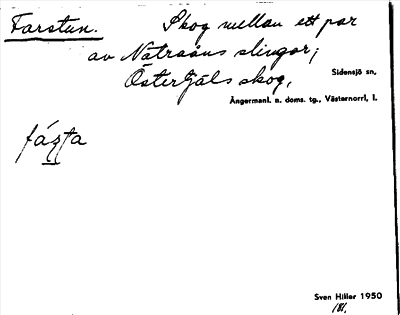 Farstun. Skog mellan ett par
av Nätraåns slingor;
Österfjäls skog,
Sidensjö sn,
Ångermanl. n. doms. tg., Västernorrl, l.
Sven Hiller 1950
181.